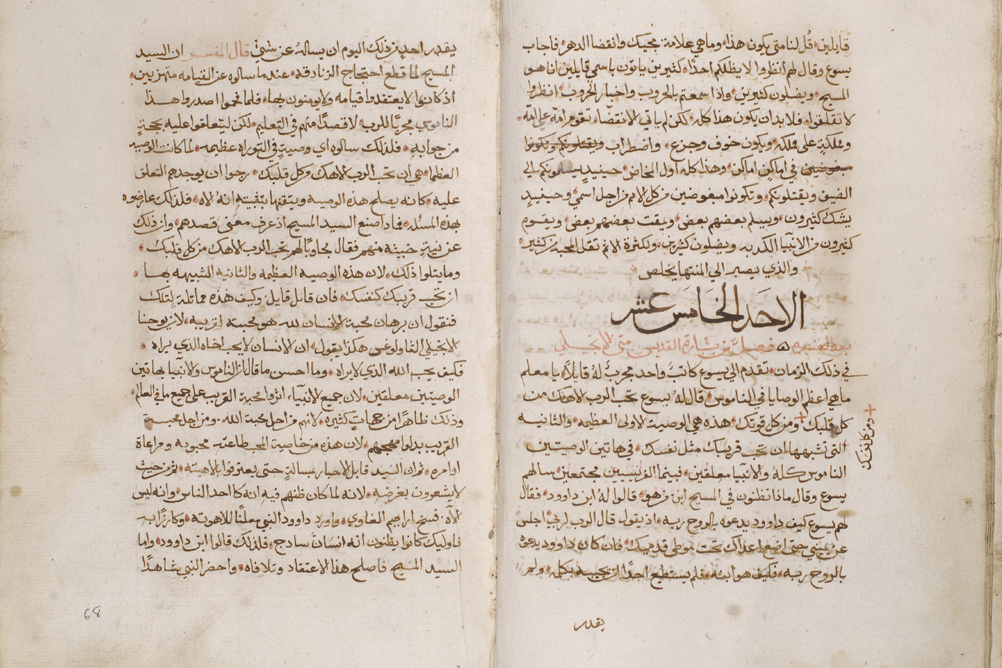 قايلين قل لنا متى يكون هذا وما هي علامة مجيك وانقضا الدهر فاجاب
يسوع وقال لهم انظروا لا يظلكم احدًا كثيرين ياتون باسمي قايلين انا هو
المسيح ويضلون كثيرين واذا سمعتم بالحروب واخبار الحروب انظروا
لا تقلقوا فلا بد ان يكون هذا كله لكن لم ياتي الانقضا تقوم امة على امة
ومملكة على مملكة ويكون خوف وجزع واضطراب
في اماكن اماكن وهذا كله اول المخاض حينيد يسلمونكم الى
الضيق ويقتلونكم وتكونوا مبغوضين من كل الامم من اجل اسمي وحينيد
يشك كثيرون ويسلم بعضهم بعض ويمقت بعضهم بعض ويقوم
كثيرون من الانبيا الكدبه ويضلون كثيرين ولكثرة الاتم تقل المحبه من كثير
والذي يصبر الى المنتها يخلص
الاحد الخامس عشر
فصل من بشارة القديس متى الانجيلي
في ذلك الزمان تقدم الى يسوع كاتب واحد مجربًا لهُ قايلاً يا معلم
ما هي اعظم الوصايا في الناموس قال لهُ يسوع تحب الرب الاهك من
كل قلبك ومن كل قوتك هذه هي الوصية الاولى العظمه والتانيه
التي تشبهها ان تحب قريبك متل نفسك في هاتين الوصيتين
الناموس كلهُ والانبيا معلقين فبينما الفريسيين مجتمعين سالهم
يسوع وقال مادا تظنون في المسيح ابن من هو قالوا لهُ ابن داوود فقال
لهم يسوع كيف داوود يدعوه بالروح ربهُ اذ يقول قال الرب لربي اجلس
عن يميني حتى اضع اعداك تحت موطى قدميك فان كان داوود يدعوه
بالروح ربه فكيف هو ابنه فلم يستطيع احدًا ان يجيبه بكلمه ولم
يقدر
يقدر احد من ذلك اليوم ان يسالهُ عن شيٍ قال المفسر ان السيد
المسيح لما قطع احتجاج الزنادقه عندما سالوه عن القيامه متهزيين
اذ كانوا لا يعتقدوا قيامه ولا يومنون بها فلما اصدروا هذا
الناموسي مجربًا للرب لا قصدًا منهم في التعليم لكن ليتعلقوا عليه بحجة
من جوابه فلذلك سالوه اي وصية في التوراه عظيمه لما كانت الوصيه
العظما هي ان تحب الرب الاهك من كل قلبك رجوا ان يوجدهم التعلق
عليه كانه يصلح هذه الوصيه ويتقنها بتثبيته انهُ الاه فلذلك
بهذه المسله فمادا صنع السيد المسيح اذ عرف معنى قصدهم وان ذلك
عن نية خبيته منهم فقال مجاوبًا لهم تحب الرب الاهك من كل قلبك
وما يتلوا ذلك لان هذه الوصيه العظيمه والثانيه الشبيهه بها
ان تحب قريبك كنفسك فان قال قايل وكيف هذه مماتلة لتلك
فنقول ان برهان محبة الانسان لله هو محبته لقريبه لان يوحنا
الانجيلي التاولوغس هكذا يقول ان الانسان لا يحب اخاه الذي يراه
فكيف يحب الله الذي لا يراه وما احسن ما قال ان الناموس والانبيا بهاتين
الوصيتين معلقين لان جميع الانبياء اثروا محبة القريب على جميع ما في العالم
وذلك ظاهرًا من جهات كتيره لانهم من اجل محبة الله ومن اجل محبة
القريب بدلوا مهجهم لان هذه من خاصية المحب طاعته محبوبه ومراعاة
اوامره فان السيد قابل الاحبار بسالة حتى يعترفوا بالاهيته من حيث
لا يشعرون بغرضه لانه لما كان ظنهم فيه انه كاحد الناس وانه ليس
الاه فسخ رايهم الغاوي واورد داوود النبي معلنًا للاهوته وكان
فاوليك كانوا يظنون انه انسان سادج فلذلك قالوا ابن داوود واما
السيد المسيح فاصلح هذا الاعتقاد وتلافاه واحضر النبي شاهدًا
68